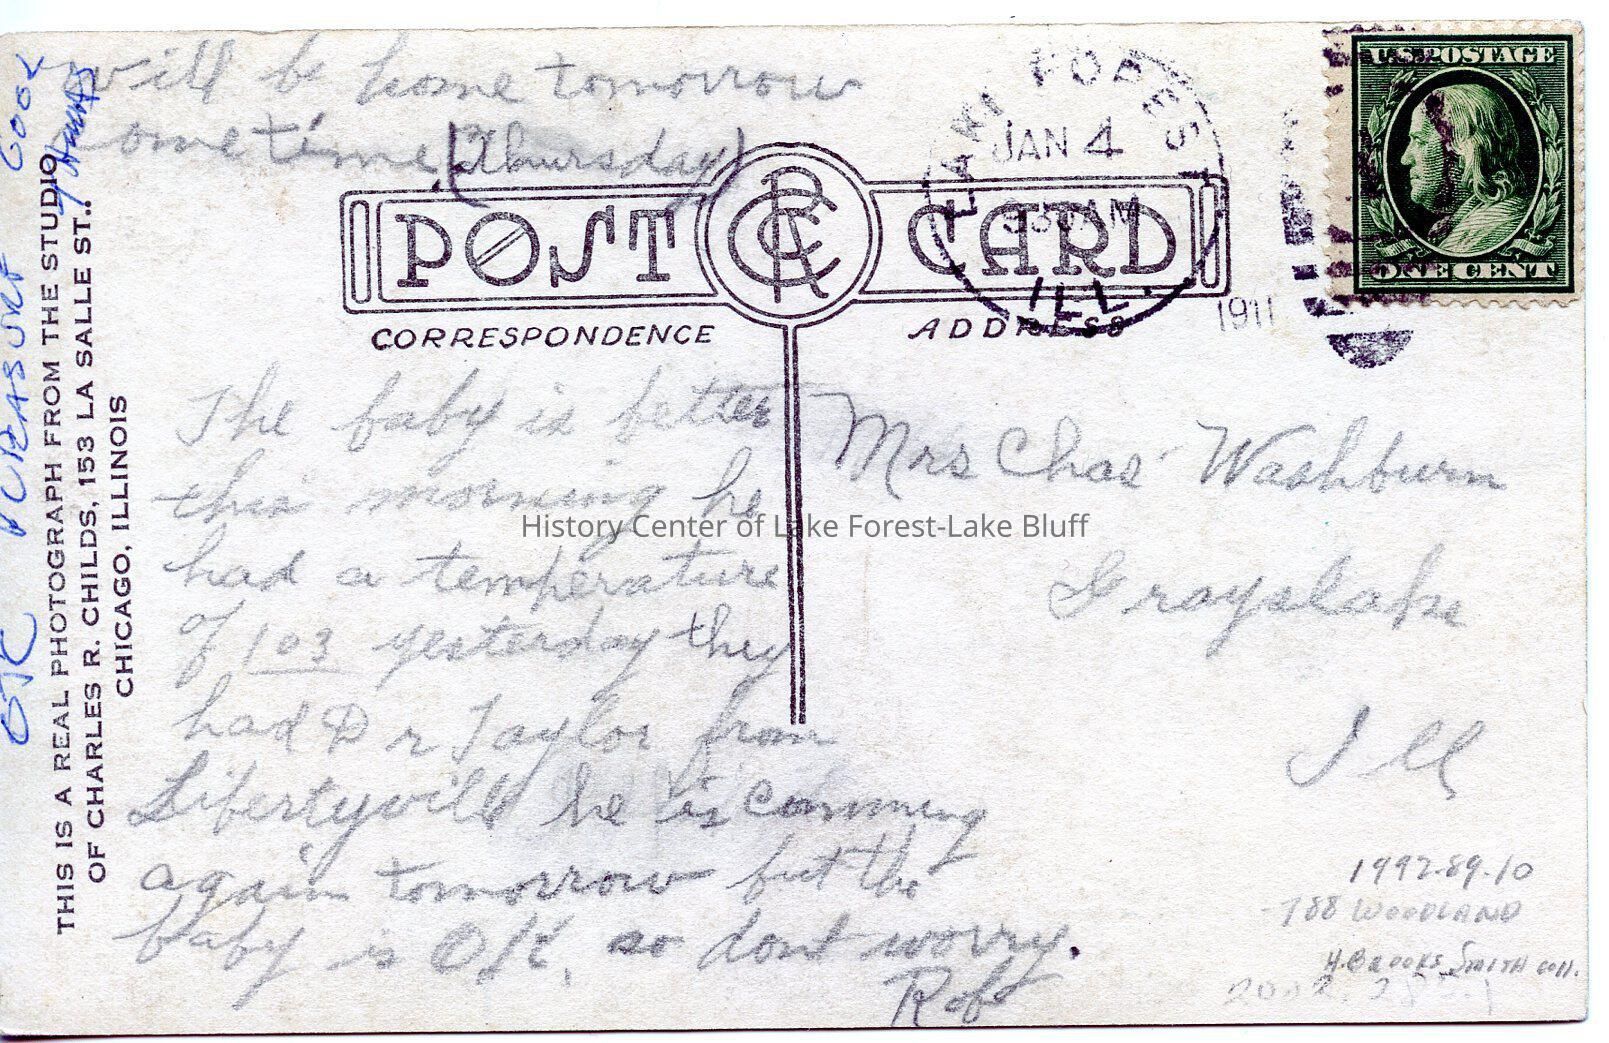 will be home tomorrow
sometime (Thursday)
LAKE FOREST
JAN 4
30 AM
ILL.
1911
U.S. POSTAGE
ONE CENT
POST CARD
CRC
CORRESPONDENCE
ADDRESS
The baby is better
this morning he
had a temperature
of 103 yesterday they
had Dr Taylor from
Libertyvill he is comming
again tomorrow but the
baby is O.K. so dont worry.
Rob
Mrs Chas Washburn
Grayslake
Ill
THIS IS A REAL PHOTOGRAPH FROM THE STUDIO
OF CHARLES R. CHILDS, 153 LA SALLE ST.,
CHICAGO, ILLINOIS
History Center of Lake Forest-Lake Bluff
1992.89.10
788 WOODLAND
H. BROOKS SMITH COLL.